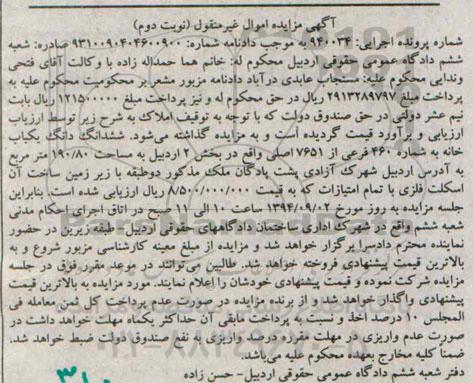 آگهی مزایده اموال غیرمنقول (نوبت دوم)
شماره پرونده اجرایی: ۹۴۰۰۳۴ به موجب دادنامه شماره: ۹۳۱۰۰۹۰۴۰۴۶۰۰۹۰۰ صادره: شعبه
ششم دادگاه عمومی حقوقی اردبیل محکوم له: خانم هما حمداله زاده با وکالت آقای فتحی
وندایی محکوم علیه: مستجاب عابدی درآباد دادنامه مزبور مشعر بر محکومیت محکوم علیه به
پرداخت مبلغ ۲۹۱۳۲۸۹۷۹۷ ریال در حق محکوم له و نیز پرداخت مبلغ ۱۲۱۵۰۰۰۰۰ ریال بابت
نیم عشر دولتی در حق صندوق دولت که با توجه به توقیف املاک به شرح زیر توسط ارزیاب
ارزیابی و برآورد قیمت گردیده است و به مزایده گذاشته می‌شود. ششدانگ دانگ یکباب
خانه به شماره ۴۶۰ فرعی از ۷۶۵۱ اصلی واقع در بخش ۲ اردبیل به مساحت ۱۹۰/۸۰ متر مربع
به آدرس اردبیل شهرک آزادی پشت پادگان ملک مذکور دوطبقه با زیر زمین ساخت آن
اسکلت فلزی با تمام امتیازات که به قیمت ۸/۵۰۰/۰۰۰/۰۰۰ ریال ارزیابی شده است. بنابراین
جلسه مزایده به روز مورخ ۱۳۹۴/۰۹/۰۲ ساعت ۱۰ الی ۱۱ صبح در اتاق اجرای احکام مدنی
شعبه ششم واقع در شهرک اداری ساختمان دادگاههای حقوقی اردبیل- طبقه زیرین در حضور
نماینده محترم دادسرا برگزار خواهد شد و مزایده از مبلغ معینه کارشناسی مزبور شروع و به
بالاترین قیمت پیشنهادی فروخته خواهد شد. طالبین می‌توانند در موعد مقرر فوق در جلسه
مزایده شرکت نموده و قیمت پیشنهادی خودشان را اعلام نمایند. مورد مزایده به بالاترین قیمت
پیشنهادی واگذار خواهد شد و از برنده مزایده در صورت عدم پرداخت کل ثمن معامله فی
المجلس ۱۰ درصد اخذ و نسبت به پرداخت مابقی آن حداکثر یکماه مهلت خواهد داشت در
صورت عدم واریزی در مهلت مقرره درصد واریزی به نفع صندوق دولت ضبط خواهد شد.
ضمناً کلیه مخارج بعهده محکوم علیه می‌باشد.
دفتر شعبه ششم دادگاه عمومی حقوقی اردبیل- حسن زاده